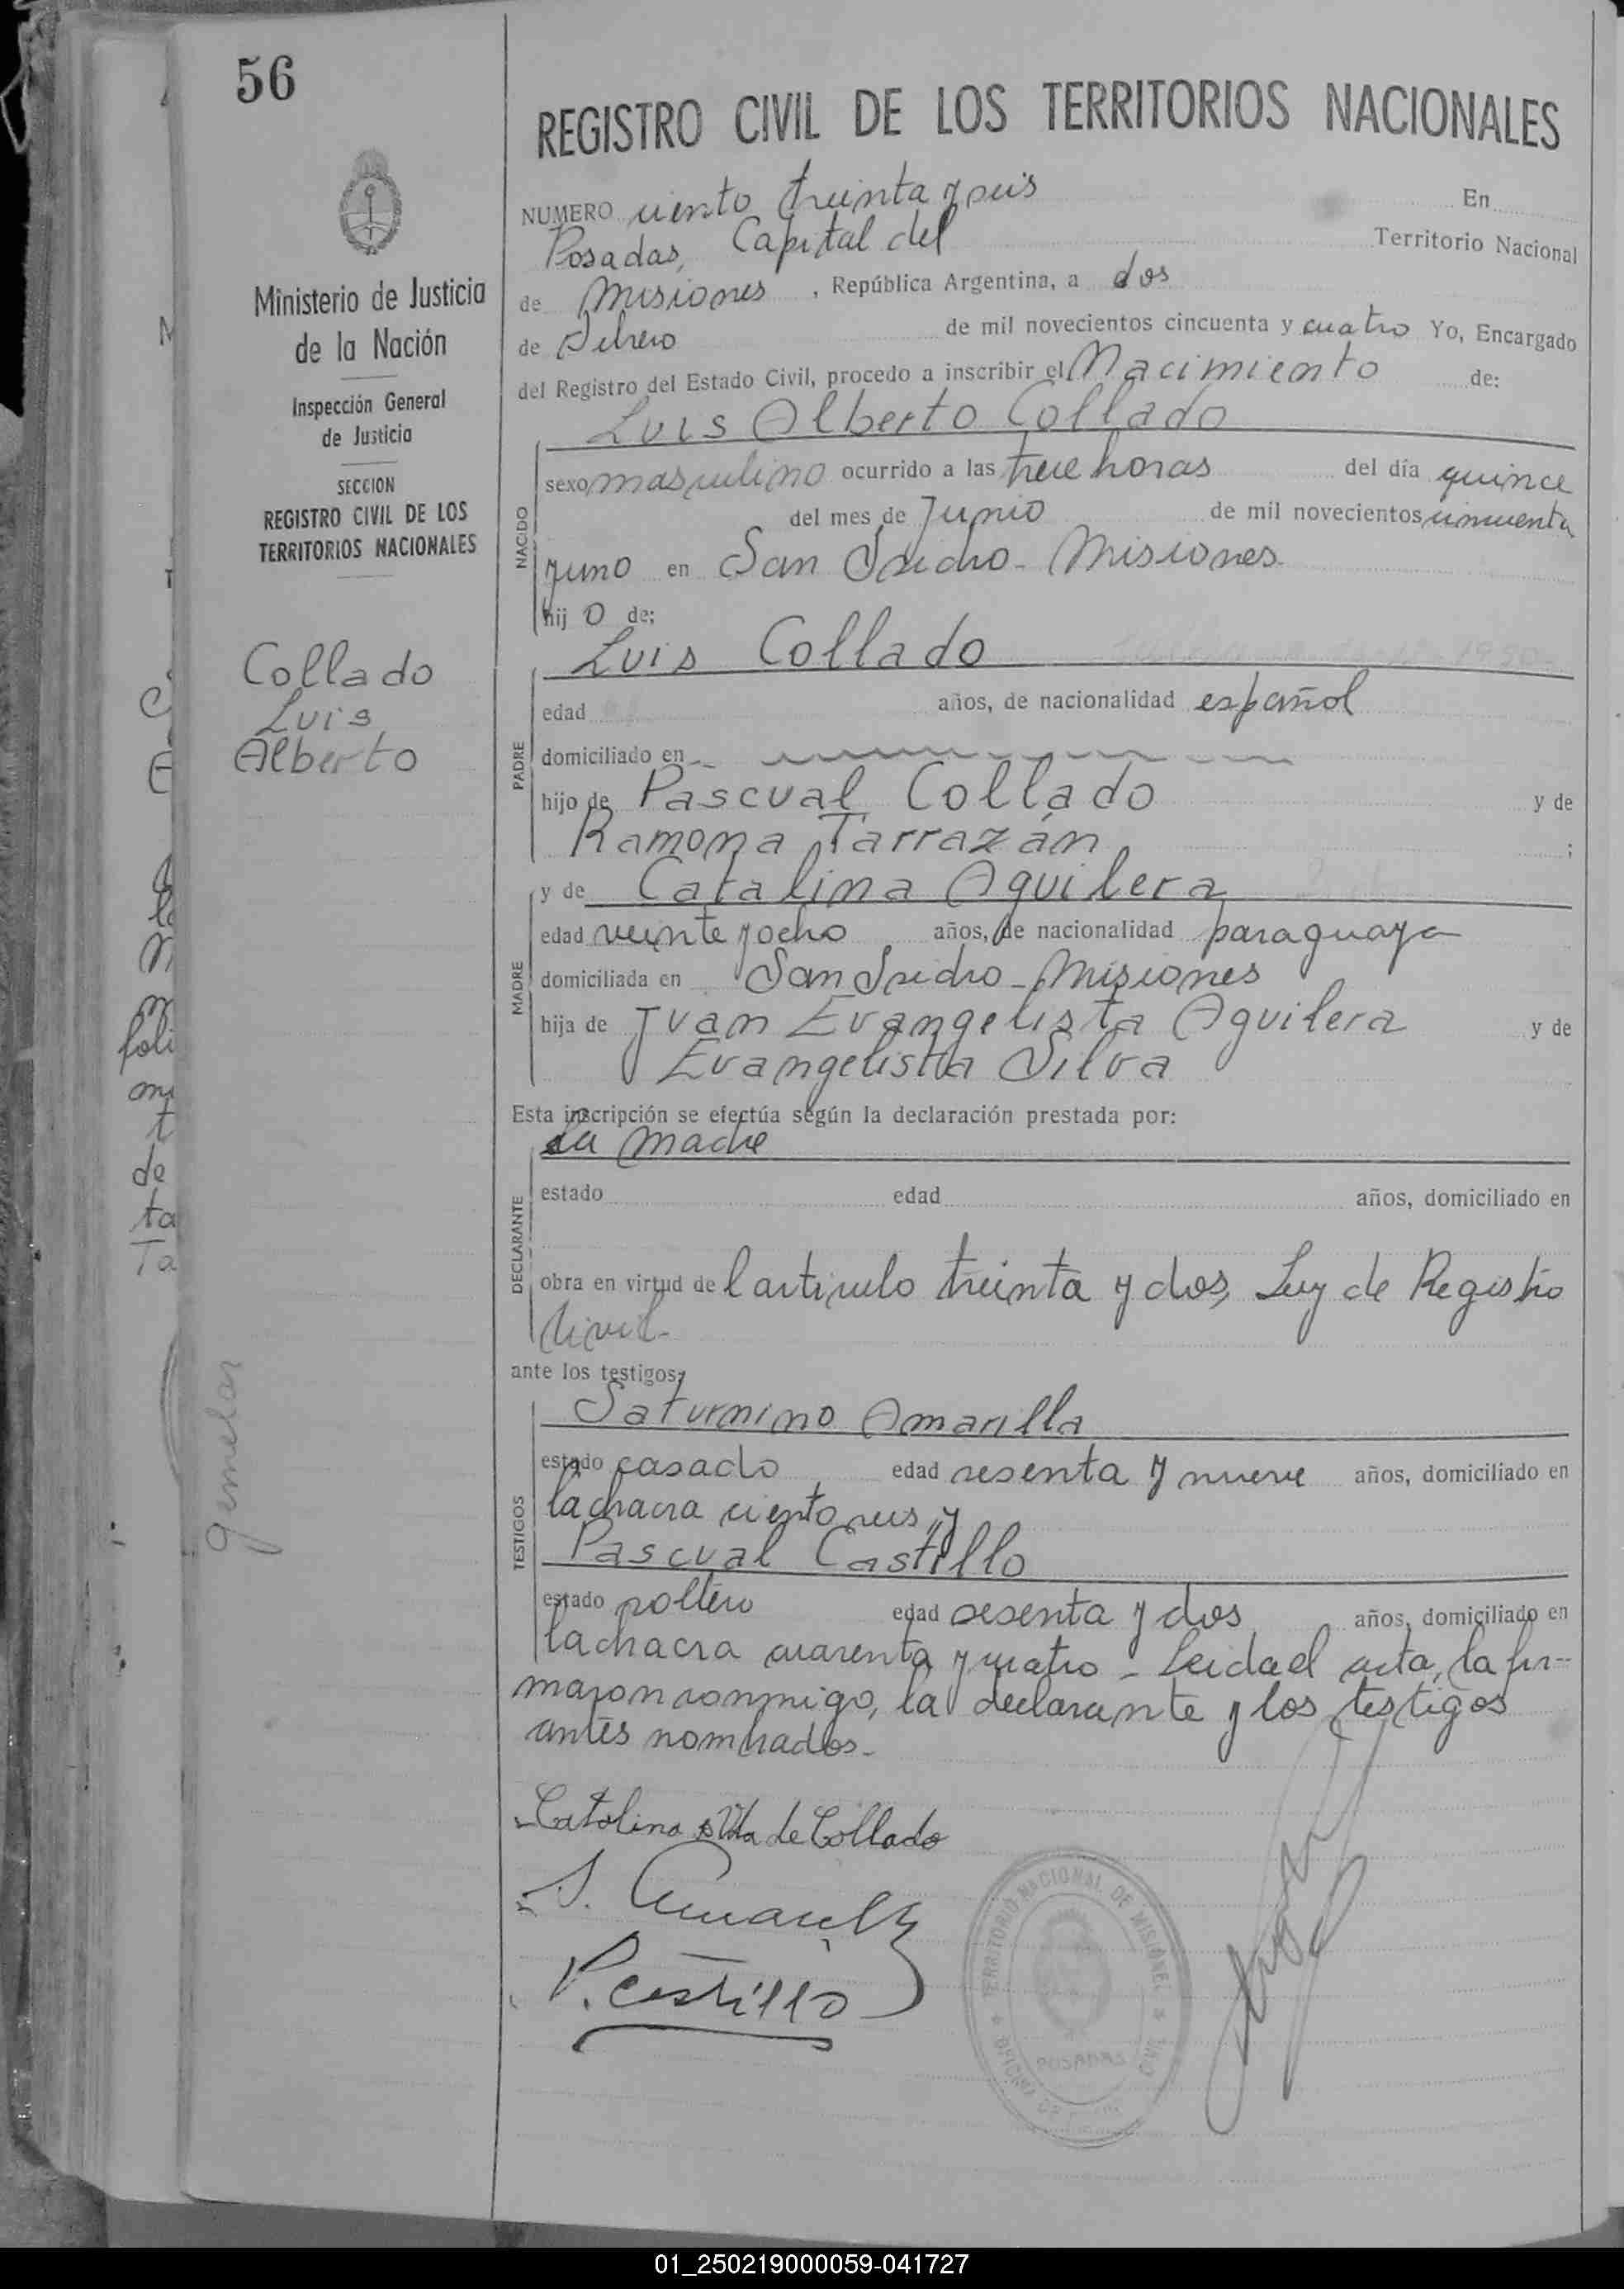 56
Ministerio de Justicia
de la Nación
Inspección General
de Justicia
SECCION
REGISTRO CIVIL DE LOS
TERRITORIOS NACIONALES
Collado
Luis
Alberto
gemelar
REGISTRO CIVIL DE LOS TERRITORIOS NACIONALES
NUMERO ciento treinta y seis En
Posadas, Capital del Territorio Nacional
de Misiones, República Argentina, a dos
de Febrero de mil novecientos cincuenta y cuatro Yo, Encargado
del Registro del Estado Civil, procedo a inscribir el Nacimiento de:
Luis Alberto Collado
NACIDO
sexo masculino ocurrido a las trece horas del día quince
del mes de Junio de mil novecientos cincuenta
y uno en San Isidro - Misiones
hijo de;
Luis Collado
PADRE
edad años, de nacionalidad español
domiciliado en
hijo de Pascual Collado y de
Ramona Tarrazán ;
y de Catalina Aguilera
MADRE
edad veinte y ocho años, de nacionalidad paraguaya
domiciliada en San Isidro - Misiones
hija de Juan Evangelista Aguilera y de
Evangelista Silva
Esta inscripción se efectúa según la declaración prestada por:
la madre
DECLARANTE
estado edad años, domiciliado en
obra en virtud de l artículo treinta y dos, Ley de Registro
Civil-
ante los testigos;
Saturnino Amarilla
TESTIGOS
estado casado edad sesenta y nueve años, domiciliado en
la chacra ciento seis y
Pascual Castillo
estado soltero edad sesenta y dos años, domiciliado en
la chacra cuarenta y cuatro - Leida el acta, la fir-
maron conmigo, la declarante y los testigos
antes nombrados.-
Catalina Vda de Collado
S. Amarilla
P. Castillo
TERRITORIO NACIONAL DE MISIONES
POSADAS
01_250219000059-041727